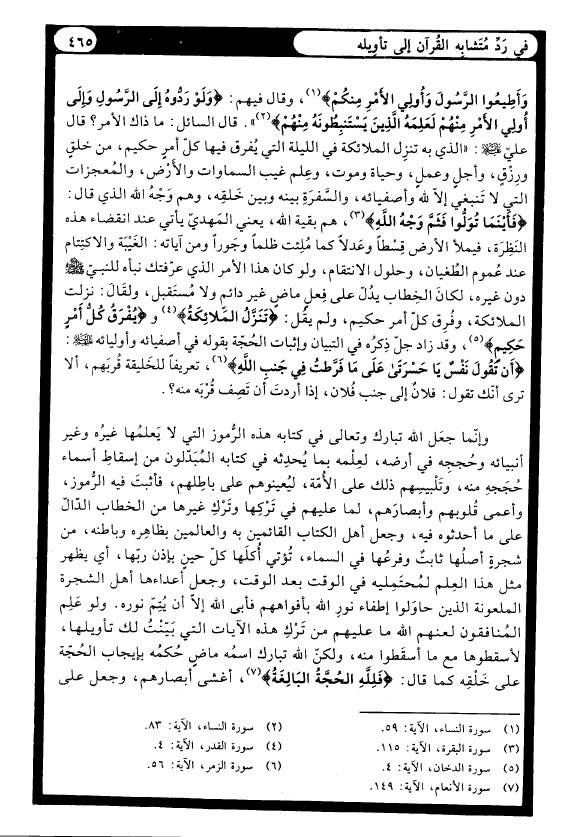 في رَدِّ مُتَشابِه القُرآن إلى تأويله
٤٦٥
وَأَطِيعُوا الرَّسُولَ وَأُولِي الأَمْرِ مِنكُمْ﴾(١)، وقال فيهم: ﴿وَلَوْ رَدُّوهُ إِلَى الرَّسُولِ وَإِلَى
أُولِي الأَمْرِ مِنْهُمْ لَعَلِمَهُ الَّذِينَ يَسْتَنبِطُونَهُ مِنْهُمْ﴾(٢)». قال السائل: ما ذاك الأمر؟ قال
عليّ ﷺ: «الذي به تنزِل الملائكة في الليلة التي يُفرق فيها كلّ أمرٍ حكيم، من خلقٍ
ورِزْقٍ، وأجلٍ وعملٍ، وحياة وموت، وعِلم غيب السماوات والأرْض، والمُعجزات
التي لا تَنبغي إلاّ لله وأصفيائه، والسَّفرَةِ بينه وبين خَلقِه، وهم وَجْهُ الله الذي قال:
﴿فَأَيْنَمَا تُوَلُّوا فَثَمَّ وَجْهُ اللَّهِ﴾(٣)، هم بقية الله، يعني المَهديّ يأتي عند انقضاء هذه
النَظِرَة، فيملأ الأرض قِسْطاً وعَدلاً كما مُلِئت ظلماً وجَوراً ومن آياته: الغَيْبَة والاكتِتام
عند عُموم الطُغيان، وحلول الانتقام، ولو كان هذا الأمر الذي عرّفتك نبأه للنبيّ ﷺ
دون غيره، لكانَ الخِطاب يدُلّ على فِعلٍ ماضٍ غير دائم ولا مُستَقبل، ولقَالَ: نزلت
الملائكة، وفُرِق كلّ أمر حكيم، ولم يقُل: ﴿تَنَزَّلُ المَلائِكَةُ﴾(٤) و ﴿يُفْرَقُ كُلُّ أَمْرٍ
حَكِيمٍ﴾(٥)، وقد زاد جلّ ذِكرُه في التبيان وإثبات الحُجّة بقوله في أصفيائه وأوليائه ﷺ:
﴿أَن تَقُولَ نَفْسٌ يَا حَسْرَتَىٰ عَلَى مَا فَرَّطتُ فِي جَنبِ اللَّهِ﴾(٦)، تعريفاً للخَليقة قُربَهم، ألا
ترى أنّك تقول: فلانٌ إلى جنب فُلان، إذا أردتَ أن تَصِف قُرْبَه منه؟.
وإنّما جعَل الله تبارك وتعالى في كتابه هذه الرُموز التي لا يَعلمُها غيرُه وغير
أنبيائه وحُججِه في أرضه، لعِلْمه بما يُحدِثه في كتابه المُبَدّلون من إسقاطِ أسماء
حُجَجِهِ منه، وتَلْبيسِهم ذلك على الأُمّة، ليُعينوهم على باطِلهم، فأثبتَ فيه الرُموز،
وأعمى قُلوبهم وأبصارَهم، لما عليهم في تَرْكِها وتَرْكِ غيرها من الخطاب الدّالّ
على ما أحدثوه فيه، وجعل أهل الكتاب القائمين به والعالمين بظاهِره وباطنه، من
شجرةٍ أصلُها ثابتٌ وفرعُها في السماء، تُؤتي أُكلَها كلّ حينٍ بإذن ربّها، أي يظهر
مثل هذا العِلم لمُحتَمِليه في الوقت بعد الوقت، وجعل أعداءها أهل الشجرة
الملعونة الذين حاوَلوا إطفاء نورِ الله بأفواههم فأبى الله إلاّ أن يُتِمّ نوره. ولو عَلِم
المُنافقون لعنهم الله ما عليهم من تَرْكِ هذه الآيات التي بَيّنْتُ لك تأويلها،
لأسقطوها مع ما أسقَطوا منه، ولكنّ الله تبارك اسمُه ماضٍ حُكمُه بإيجاب الحُجّة
على خَلْقِه كما قال: ﴿فَلِلَّهِ الحُجَّةُ البَالِغَةُ﴾(٧)، أغشى أبصارهم، وجعل على
(١) سورة النساء، الآية: ٥٩.
(٢) سورة النساء، الآية: ٨٣.
(٣) سورة البقرة، الآية: ١١٥.
(٤) سورة القدر، الآية: ٤.
(٥) سورة الدخان، الآية: ٤.
(٦) سورة الزمر، الآية: ٥٦.
(٧) سورة الأنعام، الآية: ١٤٩.